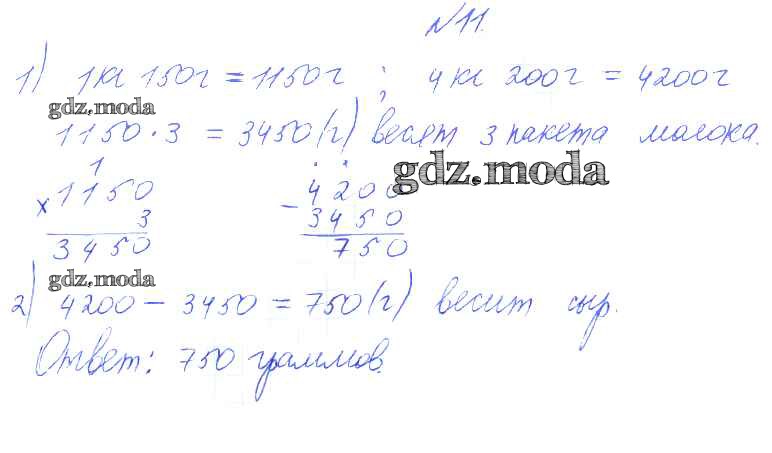 №11.
1) 1кг 150г = 1150г ; 4кг 200г = 4200г
gdz.moda
1150 · 3 = 3450 (г) весят 3 пакета молока.
gdz.moda
1
× 1150
3
3450
4200
− 3450
750
gdz.moda
2) 4200 − 3450 = 750 (г) весит сыр.
Ответ: 750 граммов.